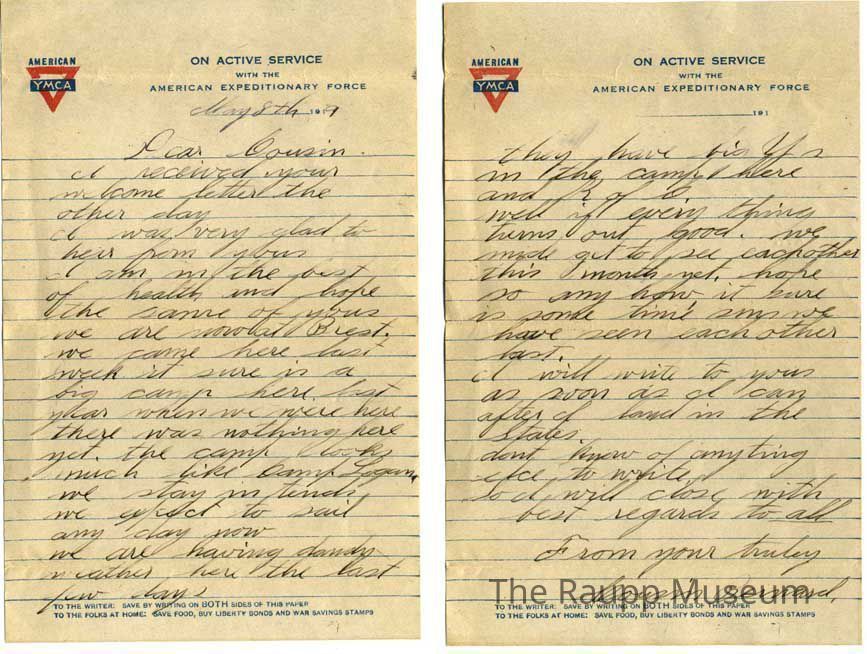 AMERICAN
YMCA
ON ACTIVE SERVICE
WITH THE
AMERICAN EXPEDITIONARY FORCE
May 8th 1919
Dear Cousin.
I received your
welcome letter the
other day
I was very glad to
hear from yous
I am in the best
of health and hope
the same of yous
we are now at Brest.
we came here last
week it sure is a
big camp here. last
year when we were here
there was nothing here
yet. the camp looks
much like Camp Logan.
we stay in tends
we expect to sail
any day now
we are having dandy
weather here the last
few days
TO THE WRITER: SAVE BY WRITING ON BOTH SIDES OF THIS PAPER
TO THE FOLKS AT HOME: SAVE FOOD, BUY LIBERTY BONDS AND WAR SAVINGS STAMPS
AMERICAN
YMCA
ON ACTIVE SERVICE
WITH THE
AMERICAN EXPEDITIONARY FORCE
191
they have big Ys
in the camp here
and K of C
well if every thing
turns out good. we
might get to see eachother
this month yet. hope
so any how, it sure
is some time sins we
have seen each other
last.
I will write to yous
as soon as I can
after I land in the
States.
dont know of anyting
else to write
so I will close with
best regards to all
From your truley
The Raupp Museum
TO THE WRITER: SAVE BY WRITING ON BOTH SIDES OF THIS PAPER
TO THE FOLKS AT HOME: SAVE FOOD, BUY LIBERTY BONDS AND WAR SAVINGS STAMPS